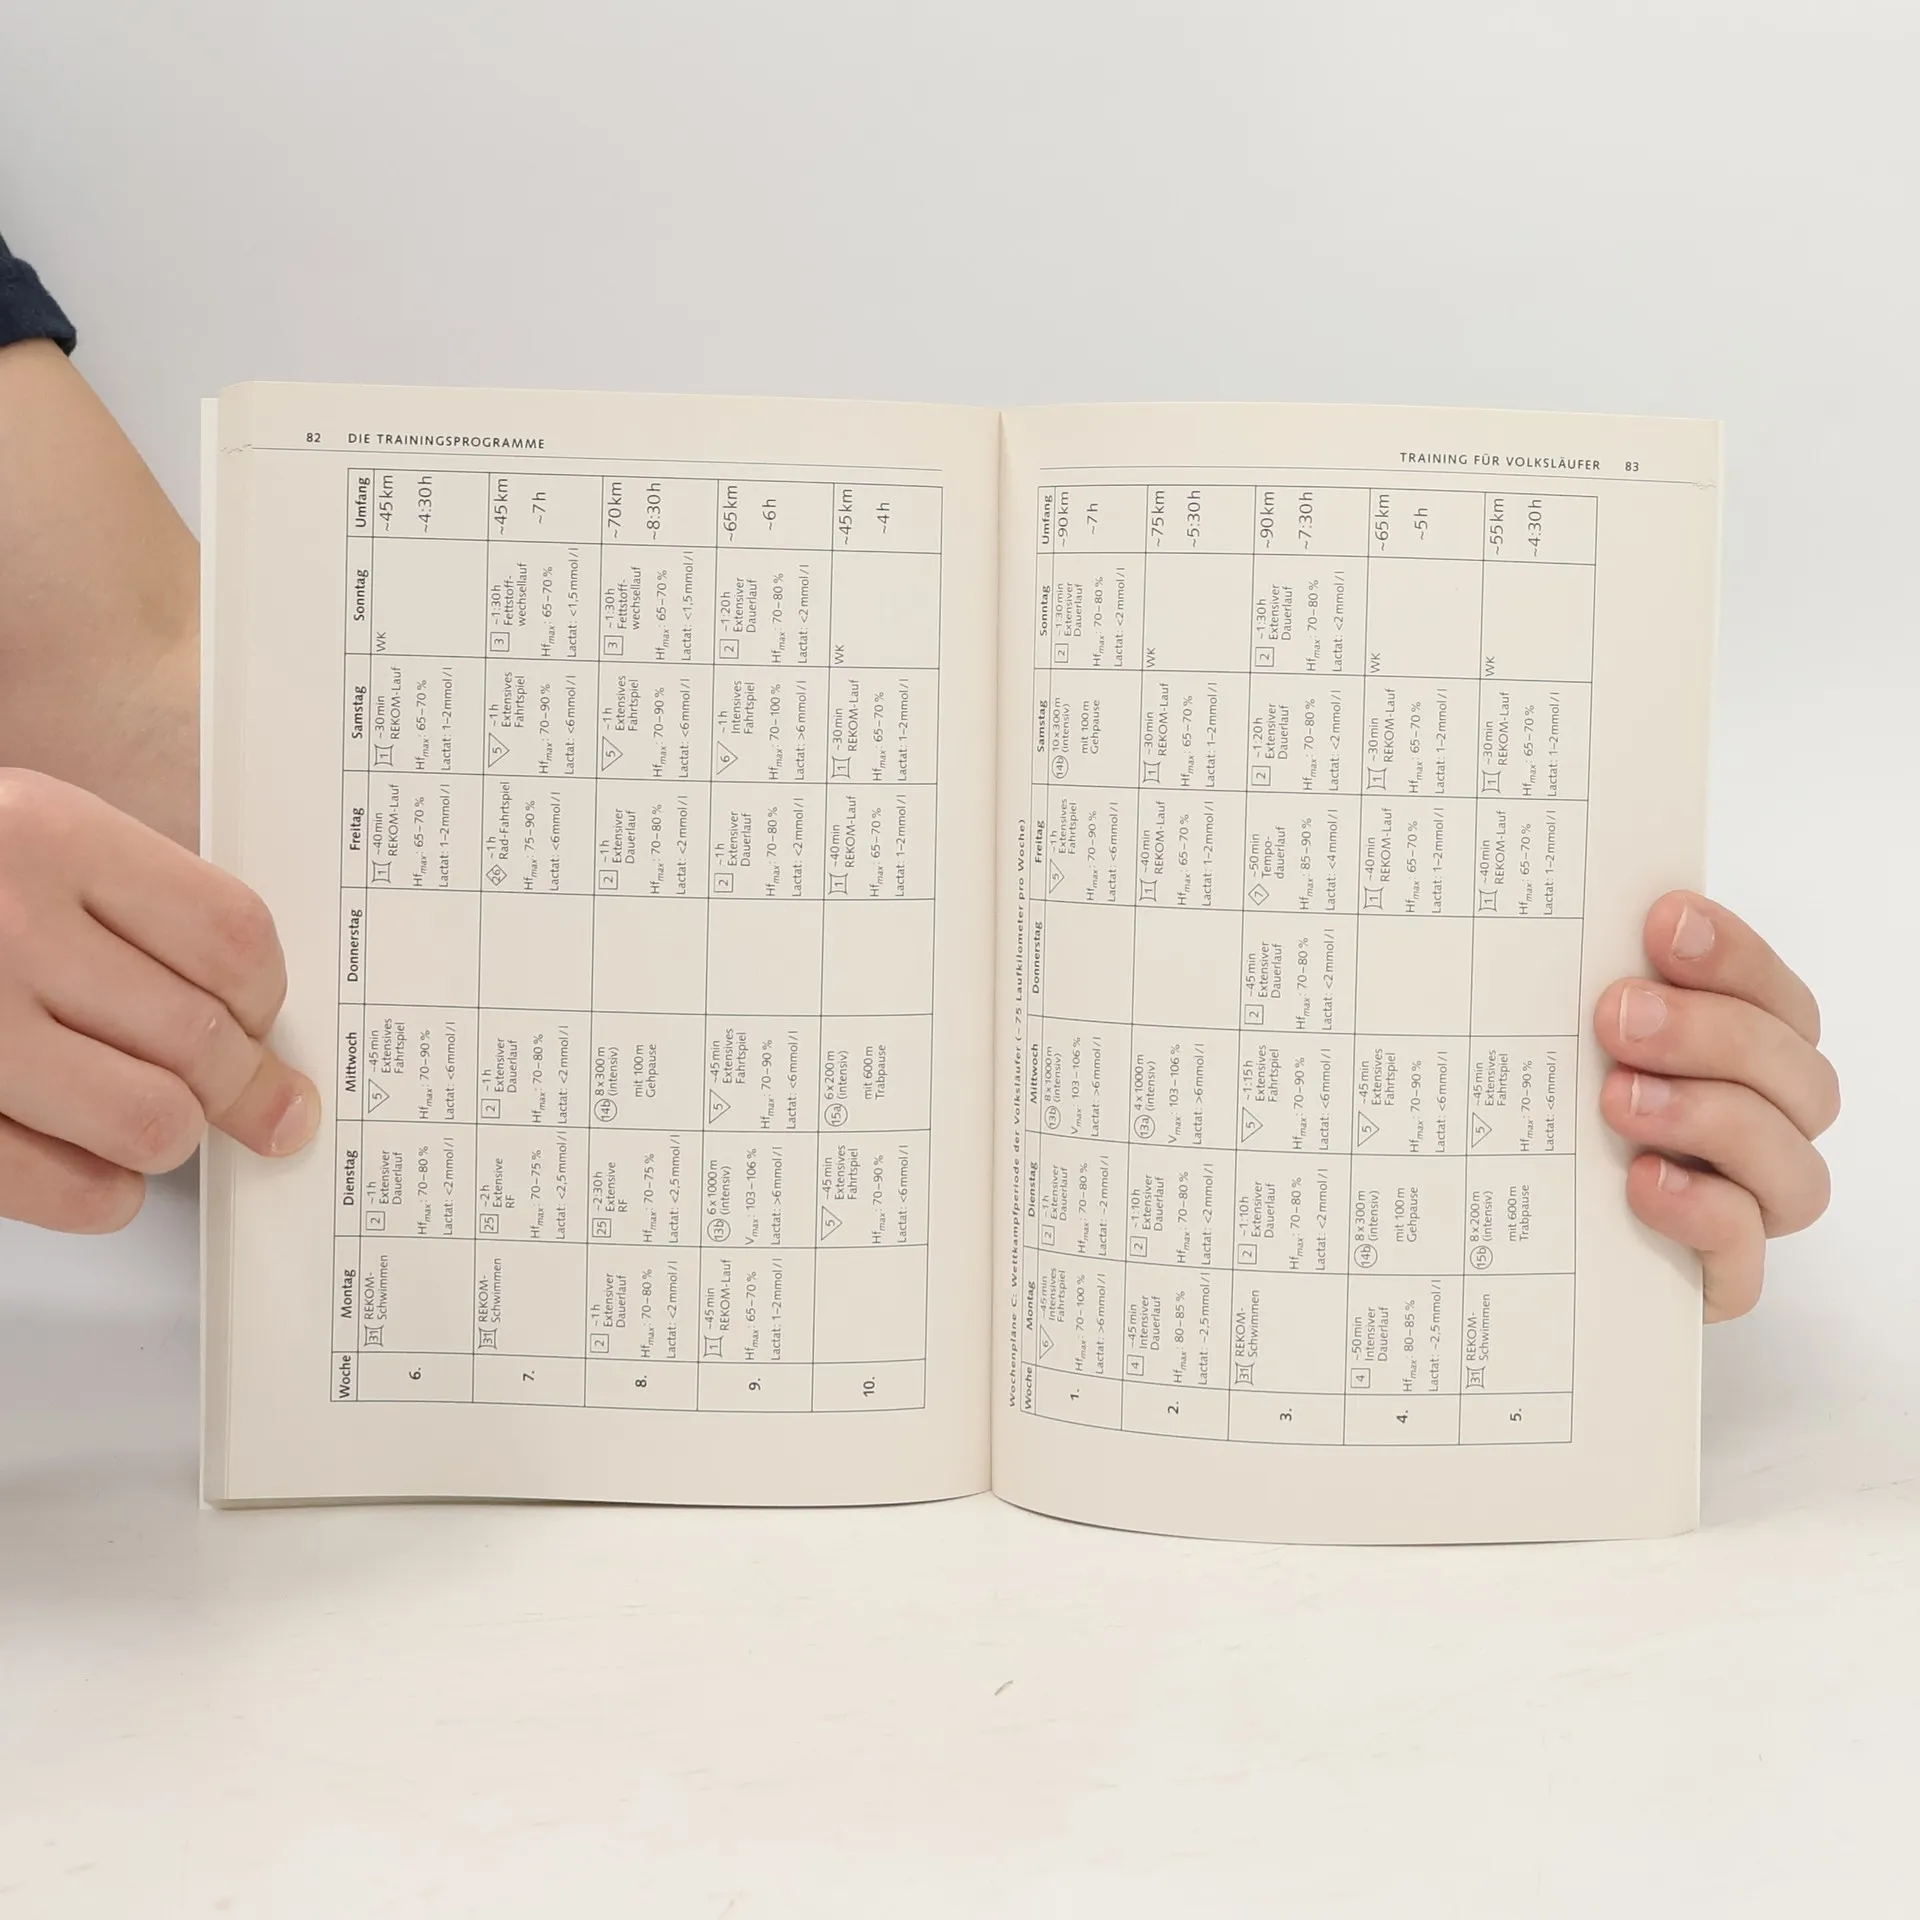 82 DIE TRAININGSPROGRAMME
Woche Montag Dienstag Mittwoch Donnerstag Freitag Samstag Sonntag Umfang
6.
31 REKOM-
Schwimmen
2 ~1h
Extensiver
Dauerlauf
Hfmax: 70–80%
Lactat: <2mmol/l
5 ~45min
Extensives
Fahrtspiel
Hfmax: 70–90%
Lactat: <6mmol/l
1 ~40min
REKOM-Lauf
Hfmax: 65–70%
Lactat: 1–2mmol/l
1 ~30min
REKOM-Lauf
Hfmax: 65–70%
Lactat: 1–2mmol/l
WK
~45km
~4:30h
7.
31 REKOM-
Schwimmen
25 ~2h
Extensive
RF
Hfmax: 70–75%
Lactat: <2,5mmol/l
2 ~1h
Extensiver
Dauerlauf
Hfmax: 70–80%
Lactat: <2mmol/l
26 ~1h
Rad-Fahrtspiel
Hfmax: 75–90%
Lactat: <6mmol/l
5 ~1h
Extensives
Fahrtspiel
Hfmax: 70–90%
Lactat: <6mmol/l
3 ~1:30h
Fettstoff-
wechsellauf
Hfmax: 65–70%
Lactat: <1,5mmol/l
~45km
~7h
8.
2 ~1h
Extensiver
Dauerlauf
Hfmax: 70–80%
Lactat: <2mmol/l
25 ~2:30h
Extensive
RF
Hfmax: 70–75%
Lactat: <2,5mmol/l
14b 8x300m
(intensiv)
mit 100m
Gehpause
2 ~1h
Extensiver
Dauerlauf
Hfmax: 70–80%
Lactat: <2mmol/l
5 ~1h
Extensives
Fahrtspiel
Hfmax: 70–90%
Lactat: <6mmol/l
3 ~1:30h
Fettstoff-
wechsellauf
Hfmax: 65–70%
Lactat: <1,5mmol/l
~70km
~8:30h
9.
1 ~45min
REKOM-Lauf
Hfmax: 65–70%
Lactat: 1–2mmol/l
13b 6x1000m
(intensiv)
Vmax: 103–106%
Lactat: >6mmol/l
5 ~45min
Extensives
Fahrtspiel
Hfmax: 70–90%
Lactat: <6mmol/l
2 ~1h
Extensiver
Dauerlauf
Hfmax: 70–80%
Lactat: <2mmol/l
6 ~1h
Intensives
Fahrtspiel
Hfmax: 70–100%
Lactat: >6mmol/l
2 ~1:20h
Extensiver
Dauerlauf
Hfmax: 70–80%
Lactat: <2mmol/l
~65km
~6h
10.
5 ~45min
Extensives
Fahrtspiel
Hfmax: 70–90%
Lactat: <6mmol/l
15a 6x200m
(intensiv)
mit 600m
Trabpause
1 ~40min
REKOM-Lauf
Hfmax: 65–70%
Lactat: 1–2mmol/l
1 ~30min
REKOM-Lauf
Hfmax: 65–70%
Lactat: 1–2mmol/l
WK
~45km
~4h
TRAINING FÜR VOLKSLÄUFER 83
Wochenpläne C: Wettkampfperiode der Volksläufer (~75 Laufkilometer pro Woche)
Woche Montag Dienstag Mittwoch Donnerstag Freitag Samstag Sonntag Umfang
1.
6 ~45min
Intensives
Fahrtspiel
Hfmax: 70–100%
Lactat: >6mmol/l
2 ~1h
Extensiver
Dauerlauf
Hfmax: 70–80%
Lactat: ~2mmol/l
13b 8x1000m
(intensiv)
Vmax: 103–106%
Lactat: >6mmol/l
5 ~1h
Extensives
Fahrtspiel
Hfmax: 70–90%
Lactat: <6mmol/l
14b 10x300m
(intensiv)
mit 100m
Gehpause
2 ~1:30min
Extensiver
Dauerlauf
Hfmax: 70–80%
Lactat: <2mmol/l
~90km
~7h
2.
4 ~45min
Intensiver
Dauerlauf
Hfmax: 80–85%
Lactat: ~2,5mmol/l
2 ~1:10h
Extensiver
Dauerlauf
Hfmax: 70–80%
Lactat: <2mmol/l
13a 4x1000m
(intensiv)
Vmax: 103–106%
Lactat: >6mmol/l
1 ~40min
REKOM-Lauf
Hfmax: 65–70%
Lactat: 1–2mmol/l
1 ~30min
REKOM-Lauf
Hfmax: 65–70%
Lactat: 1–2mmol/l
WK
~75km
~5:30h
3.
31 REKOM-
Schwimmen
2 ~1:10h
Extensiver
Dauerlauf
Hfmax: 70–80%
Lactat: <2mmol/l
5 ~1:15h
Extensives
Fahrtspiel
Hfmax: 70–90%
Lactat: <6mmol/l
2 ~45min
Extensiver
Dauerlauf
Hfmax: 70–80%
Lactat: <2mmol/l
7 ~50min
Tempo-
dauerlauf
Hfmax: 85–90%
Lactat: <4mmol/l
2 ~1:20h
Extensiver
Dauerlauf
Hfmax: 70–80%
Lactat: <2mmol/l
2 ~1:30h
Extensiver
Dauerlauf
Hfmax: 70–80%
Lactat: <2mmol/l
~90km
~7:30h
4.
4 ~50min
Intensiver
Dauerlauf
Hfmax: 80–85%
Lactat: ~2,5mmol/l
14b 8x300m
(intensiv)
mit 100m
Gehpause
5 ~45min
Extensives
Fahrtspiel
Hfmax: 70–90%
Lactat: <6mmol/l
1 ~40min
REKOM-Lauf
Hfmax: 65–70%
Lactat: 1–2mmol/l
1 ~30min
REKOM-Lauf
Hfmax: 65–70%
Lactat: 1–2mmol/l
WK
~65km
~5h
5.
31 REKOM-
Schwimmen
15b 8x200m
(intensiv)
mit 600m
Trabpause
5 ~45min
Extensives
Fahrtspiel
Hfmax: 70–90%
Lactat: <6mmol/l
1 ~40min
REKOM-Lauf
Hfmax: 65–70%
Lactat: 1–2mmol/l
1 ~30min
REKOM-Lauf
Hfmax: 65–70%
Lactat: 1–2mmol/l
WK
~55km
~4:30h